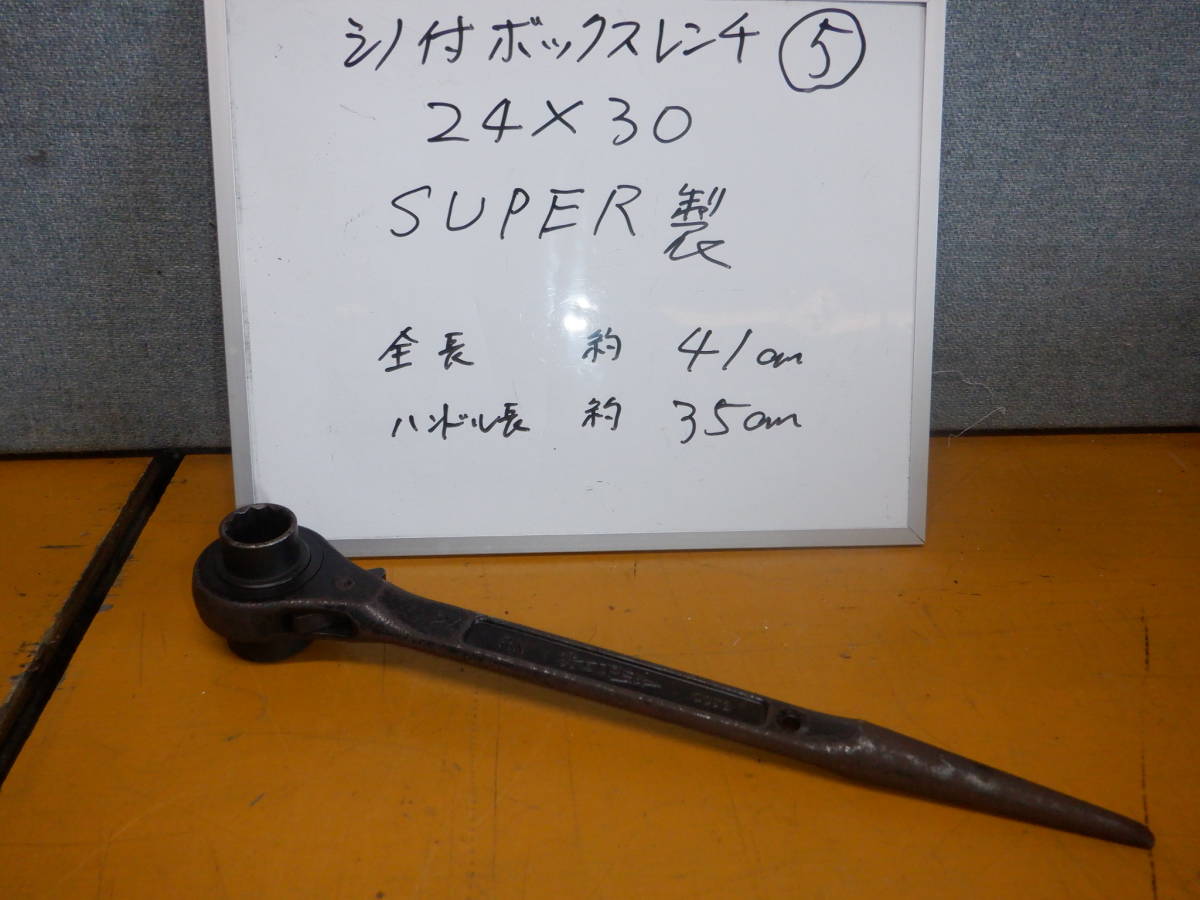 シノ付ボックスレンチ ⑤
24×30
SUPER製
全長 約 41cm
ハンドル長 約 35cm